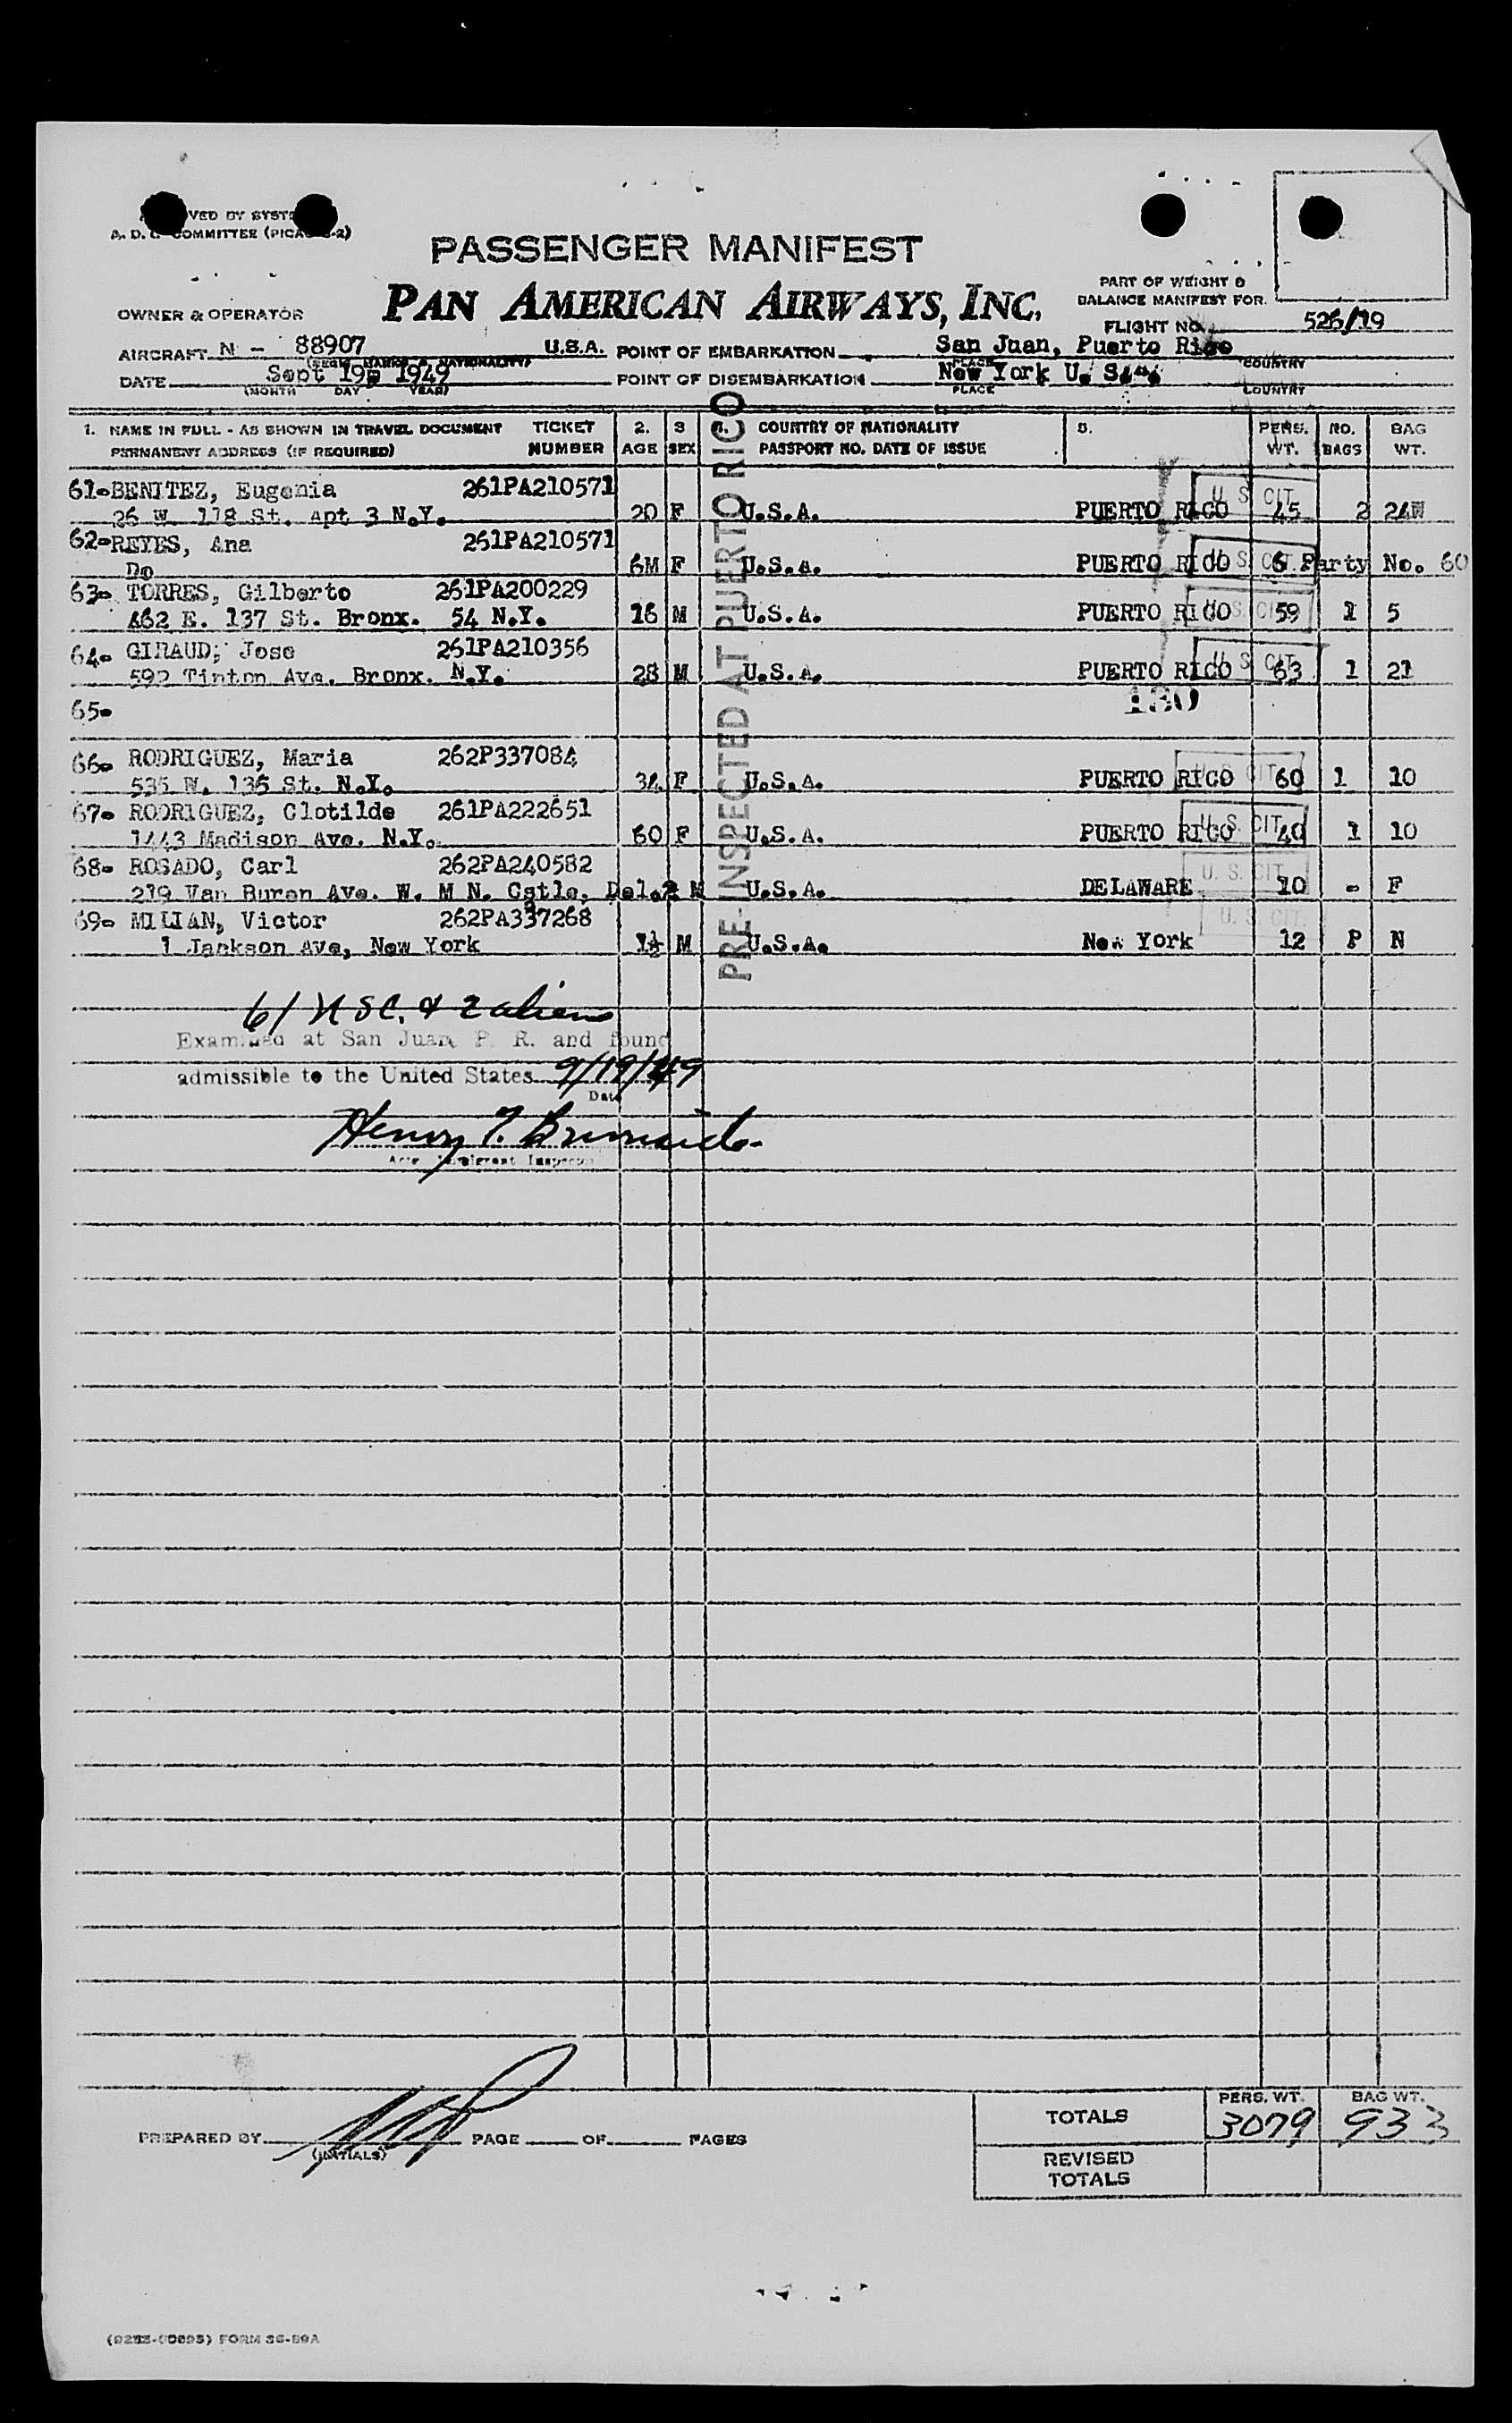 A. D. C. COMMITTEE
PASSENGER MANIFEST
PAN AMERICAN AIRWAYS, INC.
OWNER & OPERATOR
PART OF WEIGHT &
BALANCE MANIFEST FOR
FLIGHT NO. 526/19
AIRCRAFT N - 88907 U.S.A. POINT OF EMBARKATION San Juan, Puerto Rico
PLACE COUNTRY
DATE Sept 19, 1949 POINT OF DISEMBARKATION New York U. S. A.
(MONTH DAY YEAR) PLACE COUNTRY
1. NAME IN FULL - AS SHOWN IN TRAVEL DOCUMENT TICKET 2. 3 4. COUNTRY OF NATIONALITY 5. PERS. NO. BAG
PERMANENT ADDRESS (IF REQUIRED) NUMBER AGE SEX PASSPORT NO. DATE OF ISSUE WT. BAGS WT.
PRE-INSPECTED AT PUERTO RICO
61-BENITEZ, Eugenia 261PA210571 U. S. CIT.
26 W. 118 St. Apt 3 N.Y. 20 F U.S.A. PUERTO RICO 45 2 24W
62-REYES, Ana 261PA210571 U. S. CIT.
Do 6M F U.S.A. PUERTO RICO 6 Party No. 60
63- TORRES, Gilberto 261PA200229 U. S. CIT.
462 E. 137 St. Bronx. 54 N.Y. 16 M U.S.A. PUERTO RICO 59 1 5
64- GIRAUD, Jose 261PA210356 U. S. CIT.
592 Tinton Ave. Bronx. N.Y. 28 M U.S.A. PUERTO RICO 63 1 21
65- 130
66- RODRIGUEZ, Maria 262P337084 U. S. CIT.
535 W. 136 St. N.Y. 34 F U.S.A. PUERTO RICO 60 1 10
67- RODRIGUEZ, Clotilde 261PA222651 U. S. CIT.
1443 Madison Ave. N.Y. 60 F U.S.A. PUERTO RICO 40 1 10
68- ROSADO, Carl 262PA240582 U. S. CIT.
219 Van Buren Ave. W. M N. Cstle. Del. 2 M U.S.A. DELAWARE 10 - F
69- MILIAN, Victor 262PA337268 U. S. CIT.
1 Jackson Ave, New York 1½ M U.S.A. New York 12 P N
61 USC. & 2 aliens
Examined at San Juan, P. R. and found
admissible to the United States 9/19/49
Date
Henry T.
Immigrant Inspector
TOTALS PERS. WT. 3079 BAG WT. 933
PREPARED BY PAGE OF PAGES
(INITIALS)
REVISED
TOTALS
FORM 36-89A